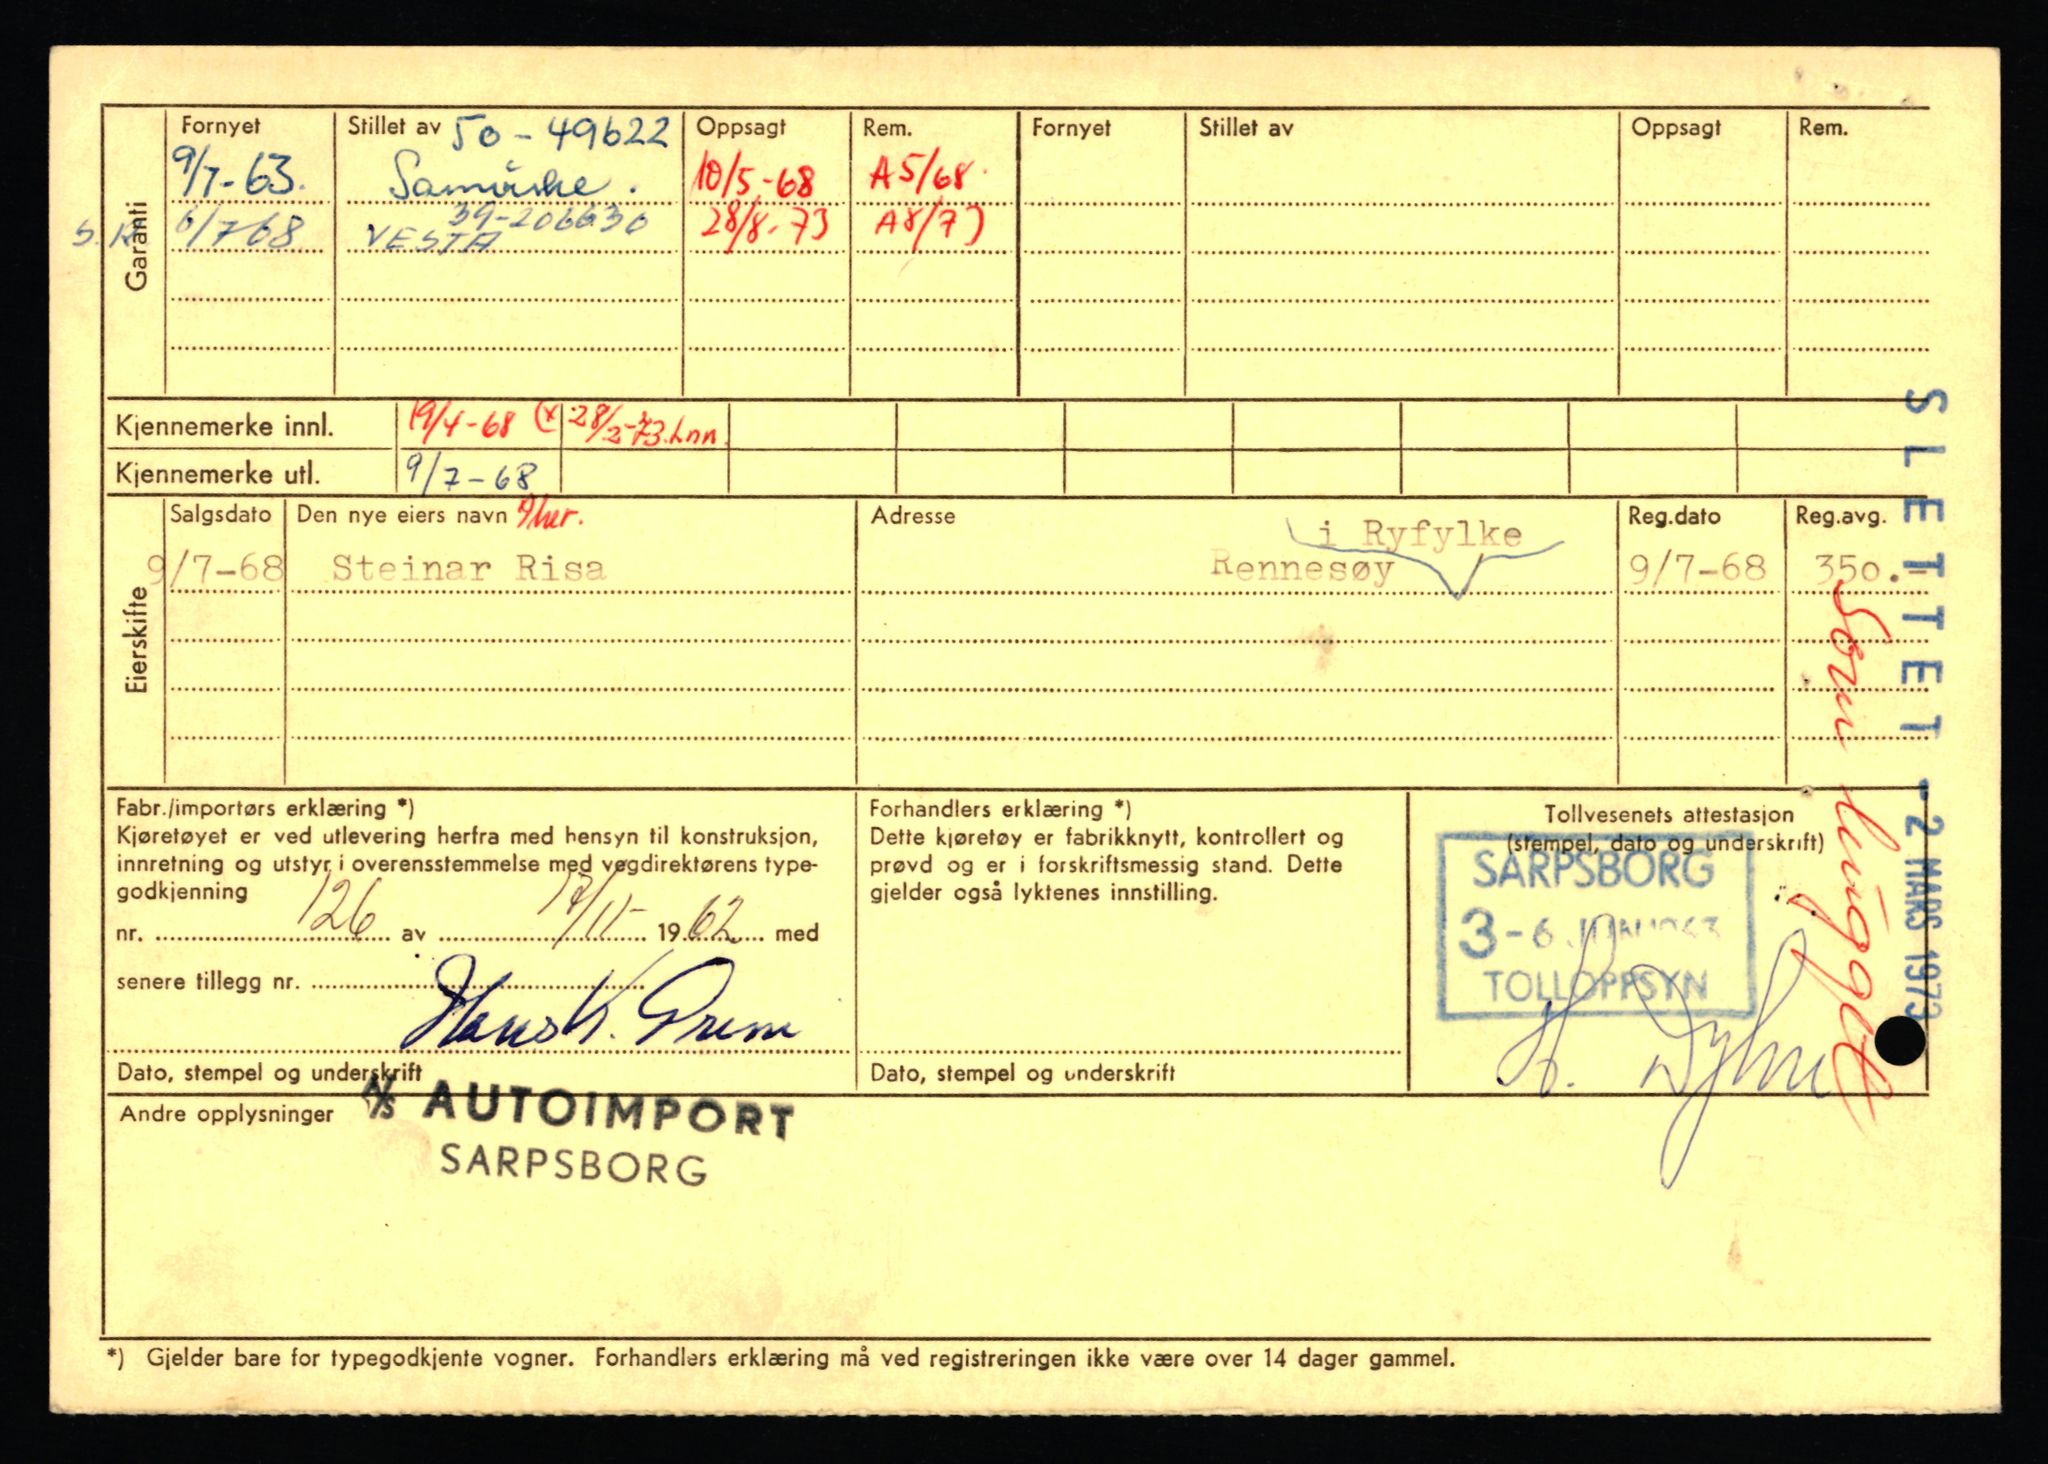 Garanti
Fornyet Stillet av 50-49622 Oppsagt Rem. Fornyet Stillet av Oppsagt Rem.
9/7-63. Samúske. 10/5-68 A5/68.
6/7-68 VESTA 39-206630 28/8-73 A8/73
Kjennemerke innl. 19/4-68 (x 28/2-73. Lnn.
Kjennemerke utl. 9/7-68
Eierskifte
Salgsdato Den nye eiers navn Adresse Reg.dato Reg.avg.
i Ryfylke
9/7-68 Steinar Risa Rennesøy 9/7-68 350.-
SLETTET -2 MARS 1973
Som hugget
Fabr./importørs erklæring *)
Kjøretøyet er ved utlevering herfra med hensyn til konstruksjon,
innretning og utstyr i overensstemmelse med vegdirektørens type-
godkjenning
nr. 126 av 19/11- 1962 med
senere tillegg nr.
Hans K.
Dato, stempel og underskrift
Forhandlers erklæring *)
Dette kjøretøy er fabrikknytt, kontrollert og
prøvd og er i forskriftsmessig stand. Dette
gjelder også lyktenes innstilling.
Dato, stempel og underskrift
Tollvesenets attestasjon
(stempel, dato og underskrift)
SARPSBORG
3-6 JUNI 1963
TOLLOPPSYN
Andre opplysninger
A/S AUTOIMPORT
SARPSBORG
*) Gjelder bare for typegodkjente vogner. Forhandlers erklæring må ved registreringen ikke være over 14 dager gammel.